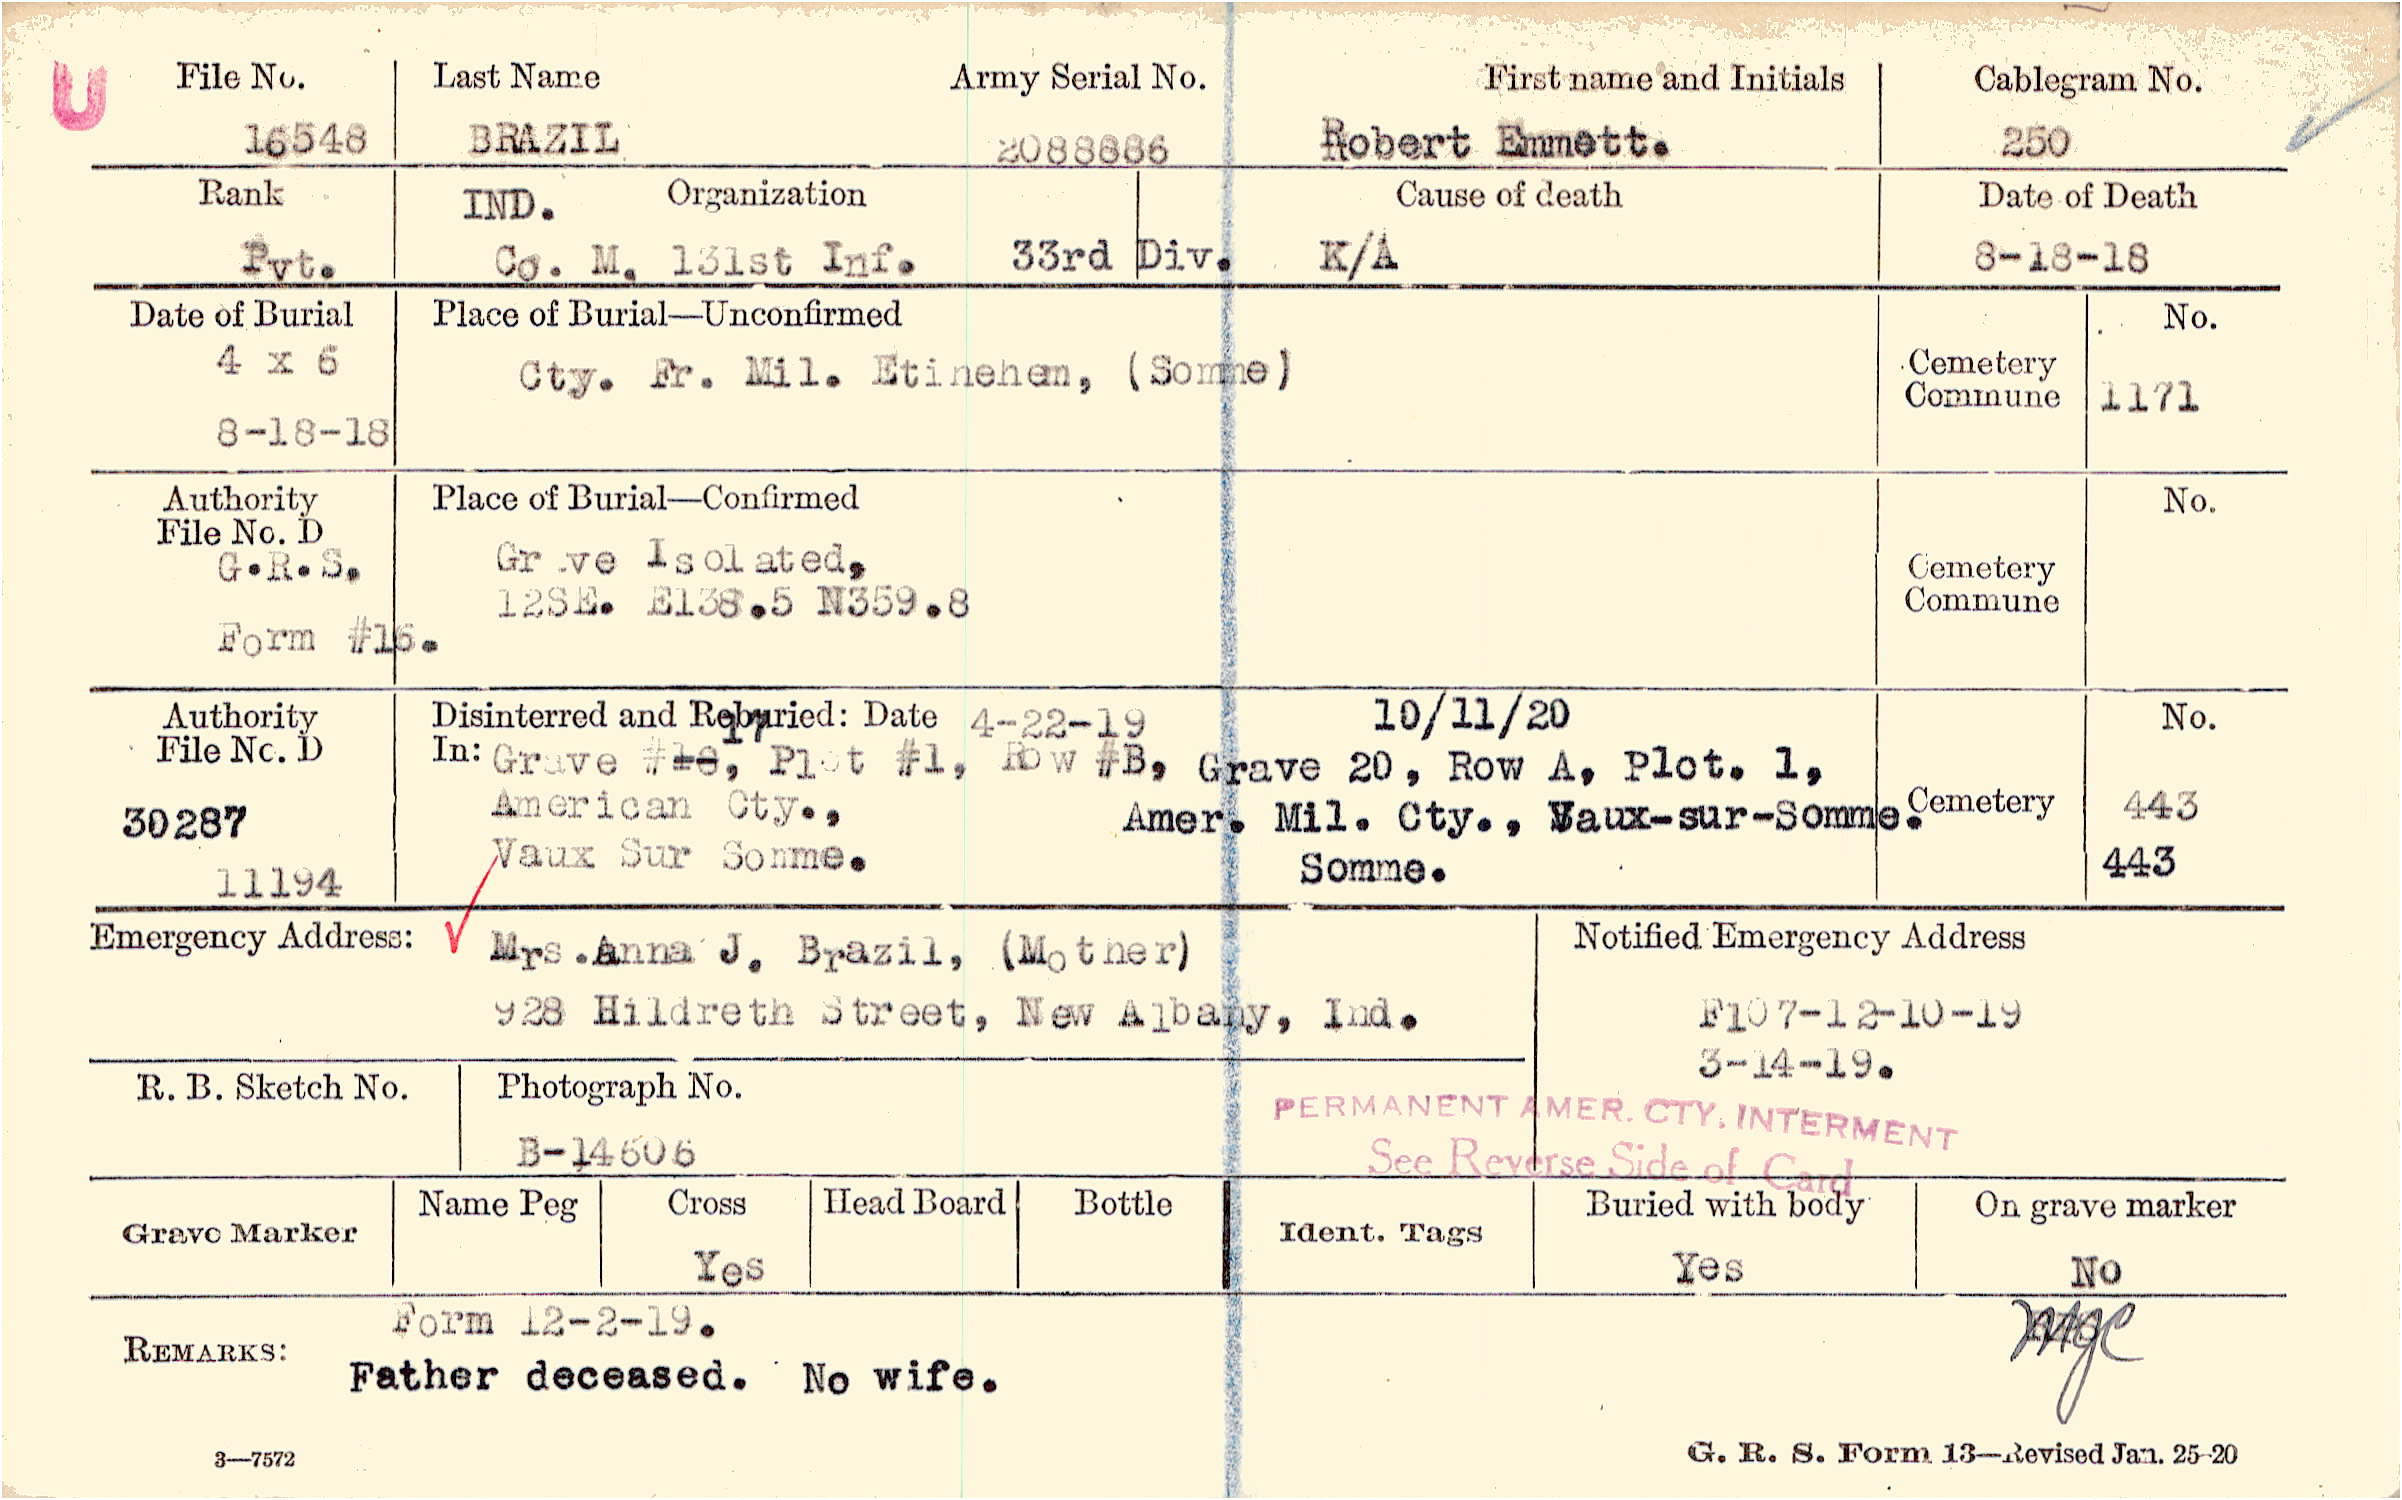 U
File No. Last Name Army Serial No. First name and Initials Cablegram No.
16548 BRAZIL 2088886 Robert Emmett. 250
Rank IND. Organization Cause of death Date of Death
Pvt. Co. M, 131st Inf. 33rd Div. K/A 8-18-18
Date of Burial Place of Burial—Unconfirmed No.
4 x 6 Cty. Fr. Mil. Etinehem, (Somme) Cemetery
Commune 1171
8-18-18
Authority Place of Burial—Confirmed No.
File No. D
G.R.S. Grave Isolated, Cemetery
12SE. E138.5 N359.8 Commune
Form #16.
Authority Disinterred and Reburied: Date 4-22-19 10/11/20 No.
17
File No. D In: Grave #18, Plot #1, Row #B, Grave 20, Row A, Plot. 1,
30287 American Cty., Amer. Mil. Cty., Vaux-sur-Somme. Cemetery 443
11194 Vaux Sur Somme. Somme. 443
Emergency Address: Mrs. Anna J. Brazil, (Mother) Notified Emergency Address
928 Hildreth Street, New Albany, Ind. F107-12-10-19
3-14-19.
R. B. Sketch No. Photograph No.
PERMANENT AMER. CTY. INTERMENT
B-14606 See Reverse Side of Card
Grave Marker Name Peg Cross Head Board Bottle Ident. Tags Buried with body On grave marker
Yes Yes No
Form 12-2-19.
REMARKS:
Father deceased. No wife.
3—7572 G. R. S. Form 13—Revised Jan. 25-20